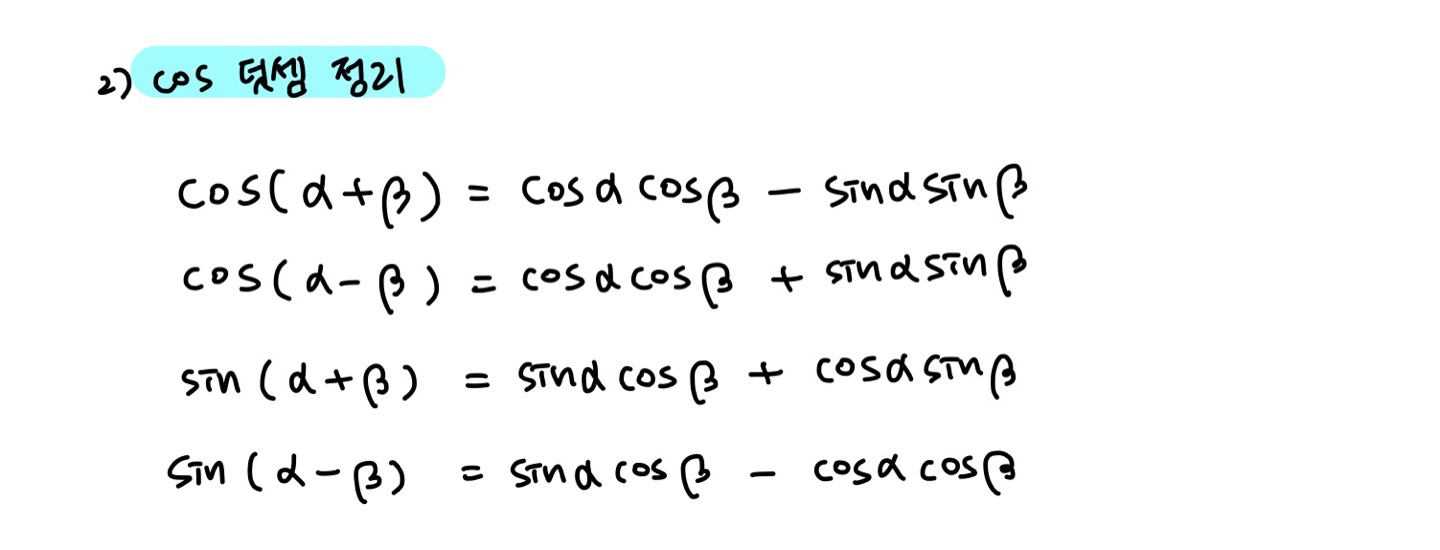 2) cos 덧셈 정리
cos(α+β) = cosα cosβ − sinα sinβ
cos(α−β) = cosα cosβ + sinα sinβ
sin(α+β) = sinα cosβ + cosα sinβ
sin(α−β) = sinα cosβ − cosα cosβ